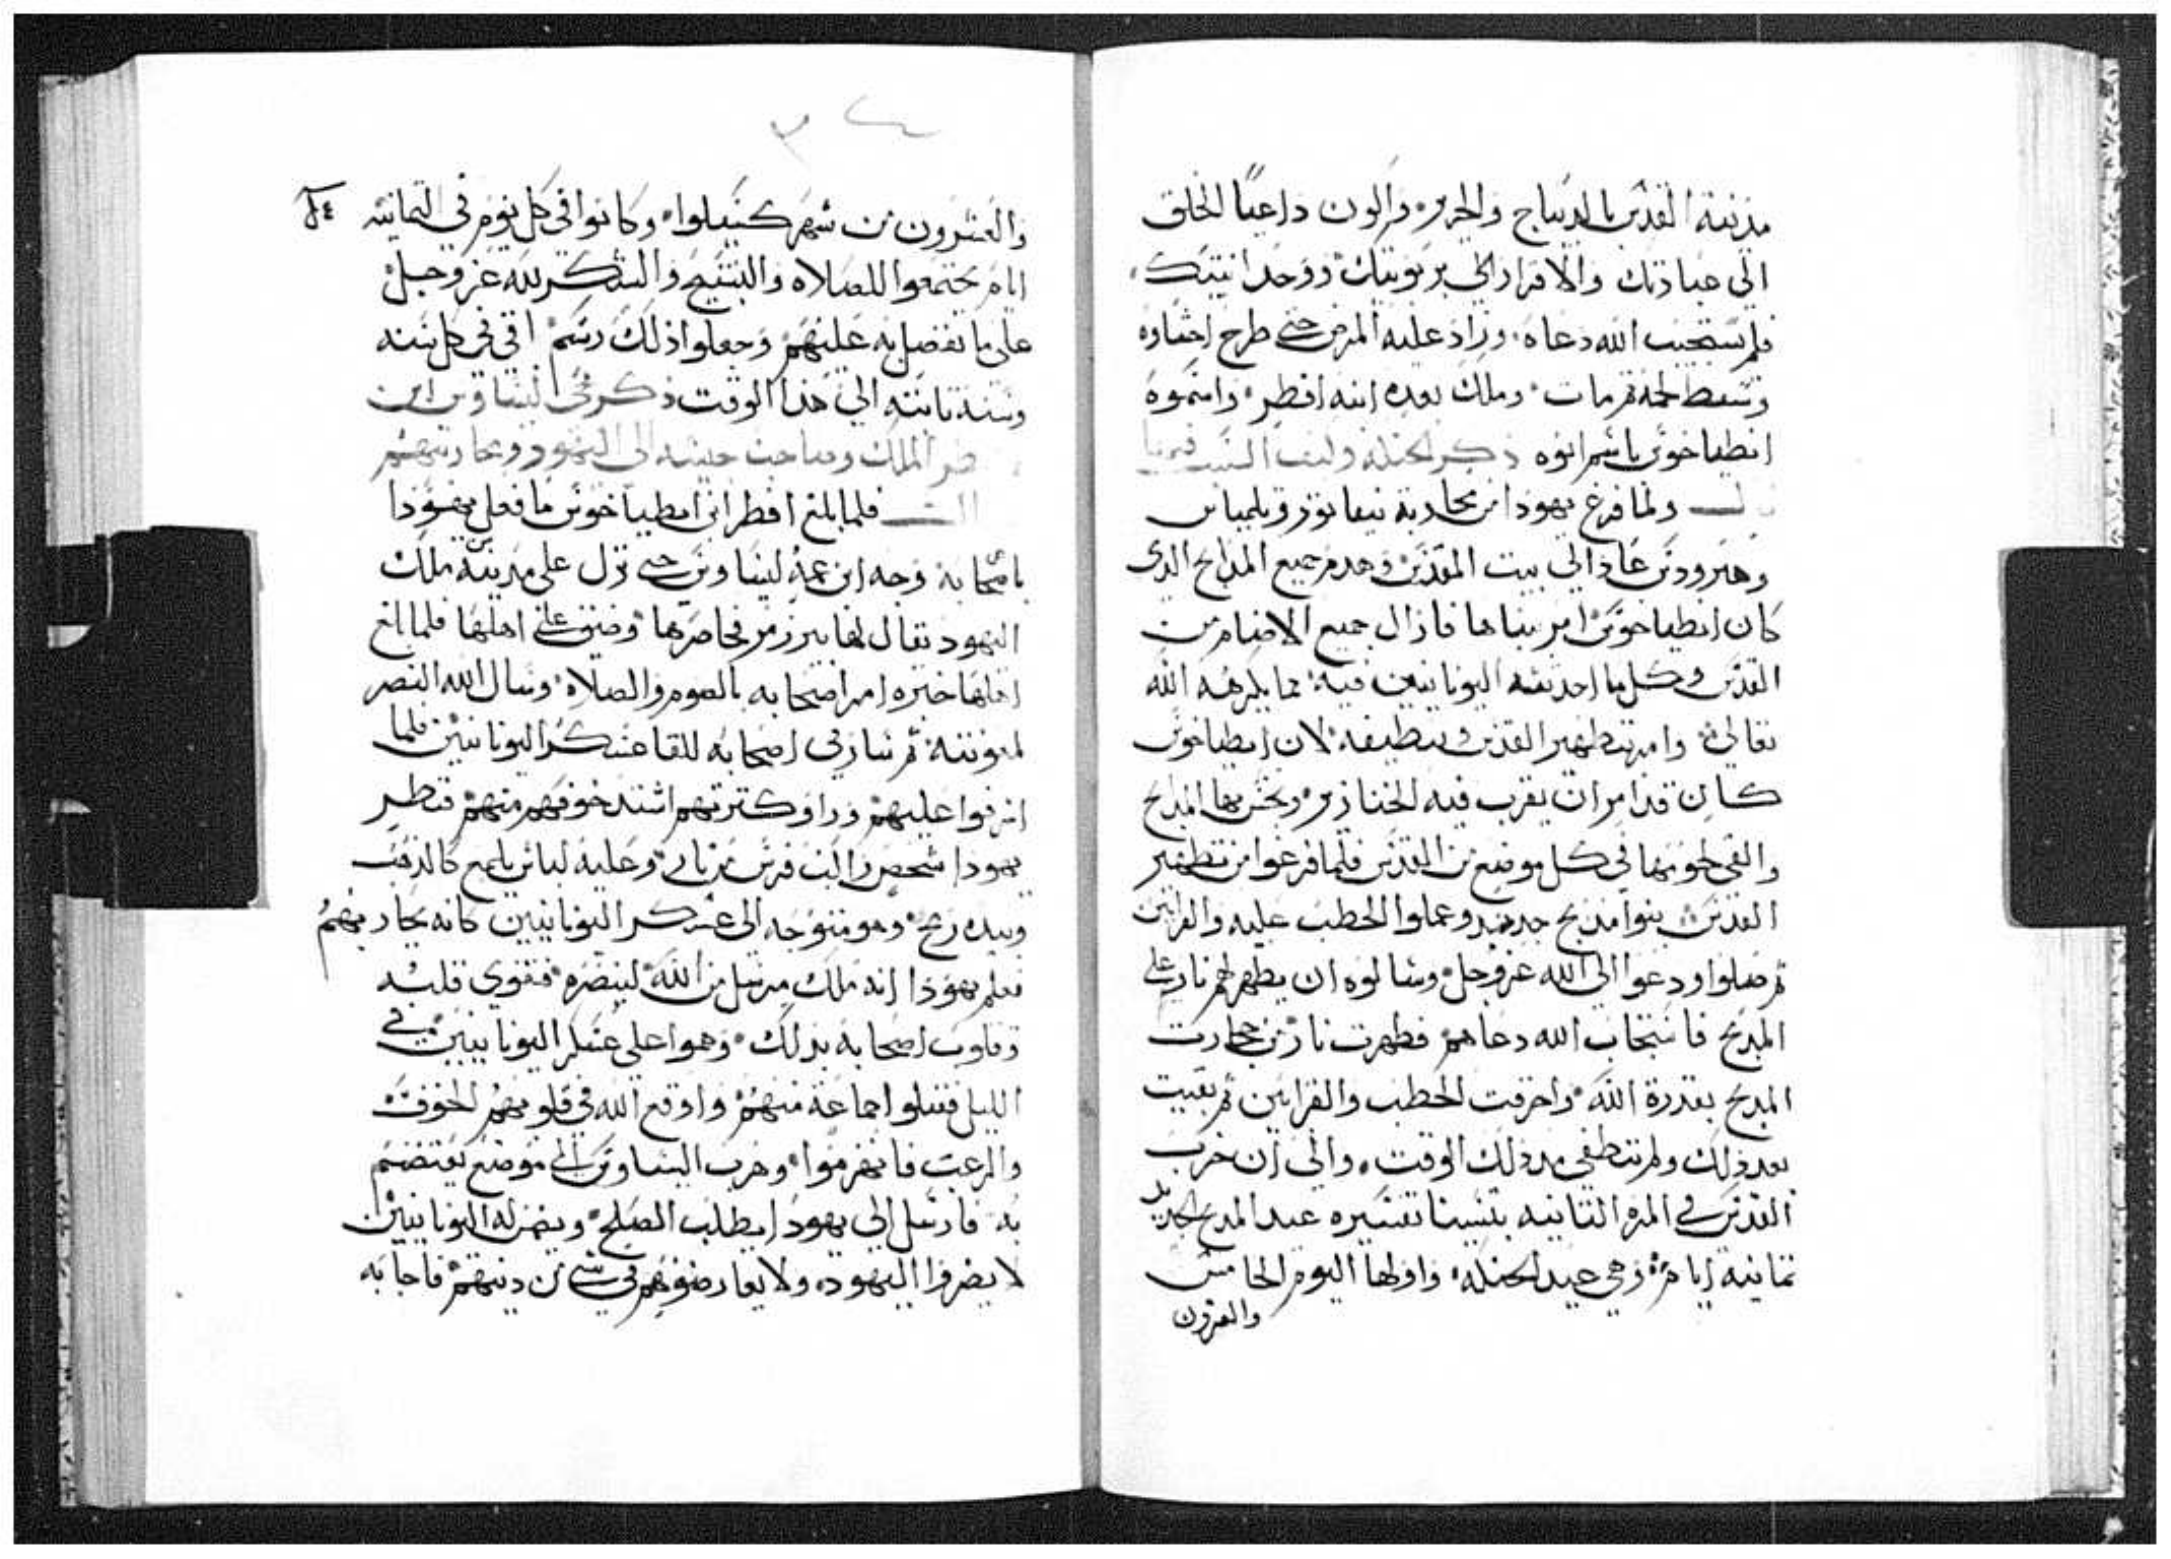 مدينة القدس بالديباج والحرير واكون داعيًا الخلق
الى عبادتك والاقرار الى بربوبيتك ووحدانيتك
فلم يستجيب الله دعاه وزاد عليه المرض حتى طرح احشاوه
وسقط لحمه ثم مات وملك بعده ابنه افطر واسموه
انطياخوس باسم ابوه ذكر الحنكه
ولما فرغ يهودا من محاربة نيقانور وتلمياس
وهيرودس عاد الى بيت المقدس وهدم جميع المدابح الدى
كان انطياخوس امر ببناها فازال جميع الاصنام من
القدس وكل ما احدثته اليونانيين فيه مما يكرهه الله
تعالى وامر بتطهير القدس وتنظيفه لان انطياخوس
كان قد امر ان يقرب فيه الخنازير وينجس بها المدابح
والقى لحومها في كل موضع من القدس فلما فرغوا من تطهير
القدس بنوا مدبح جديد وعملوا الحطب عليه والقرابين
ثم صلوا ودعوا الى الله عز وجل وسالوه ان يظهر لهم نار على
المدبح فاستجاب الله دعاهم فظهرت نار من حجارت
المدبح بقدرة الله واحرقت الحطب والقرابين ثم بقيت
بعد ذلك ولم تنطفي من ذلك الوقت والى ان خرب
القدس في المره الثانيه عيد المدبح الجديد
تمانية ايام وهي عيد الحنكه واولها اليوم الخامس
والعشرون
٣٤
والعشرون من شهر كسيلوا وكانوا في كل يوم في التمانيه
ايام يجتمعوا للصلاه والتسبيح والشكر لله عز وجل
على ما تفضل به عليهم وجعلوا ذلك رسم في كل سنه
وسنه تابته الى هذا الوقت ذكر
الملك وصاحب جيشه الى اليهود ومحاربتهم
فلما بلغ افطر ابن انطياخوس ما فعل يهودا
باصحابه وجه ابن عمه ليساوس حتى نزل على مدينة ملك
اليهود يقال لها فحاصرها وضيق على اهلها فلما بلغ
خبره امر اصحابه بالصوم والصلاه وسال الله النصر
لمعونته ثم سار في اصحابه للقا عسكر اليونانيين فلما
اشرفوا عليهم وراو كترتهم اشتد خوفهم منهم فنظر
يهودا شخص راكب فرس من نار وعليه لباس يلمع كالدهب
وبيده رمح وهو متوجه الى عسكر اليونانيين كانه يحاربهم
فعلم يهودا انه ملك مرسل من الله لينصره فقوي قلبه
وقلوب اصحابه بدلك وهموا على عسكر اليونانيين في
الليل فقتلوا جماعة منهم واوقع الله في قلوبهم الخوف
والرعب فانهزموا وهرب ليساوس الى موضع يعتصم
به فارسل الى يهودا يطلب الصلح ويضمن له اليونانيين
لا يضروا اليهود ولا يعارضوهم في شي من دينهم فاجابه